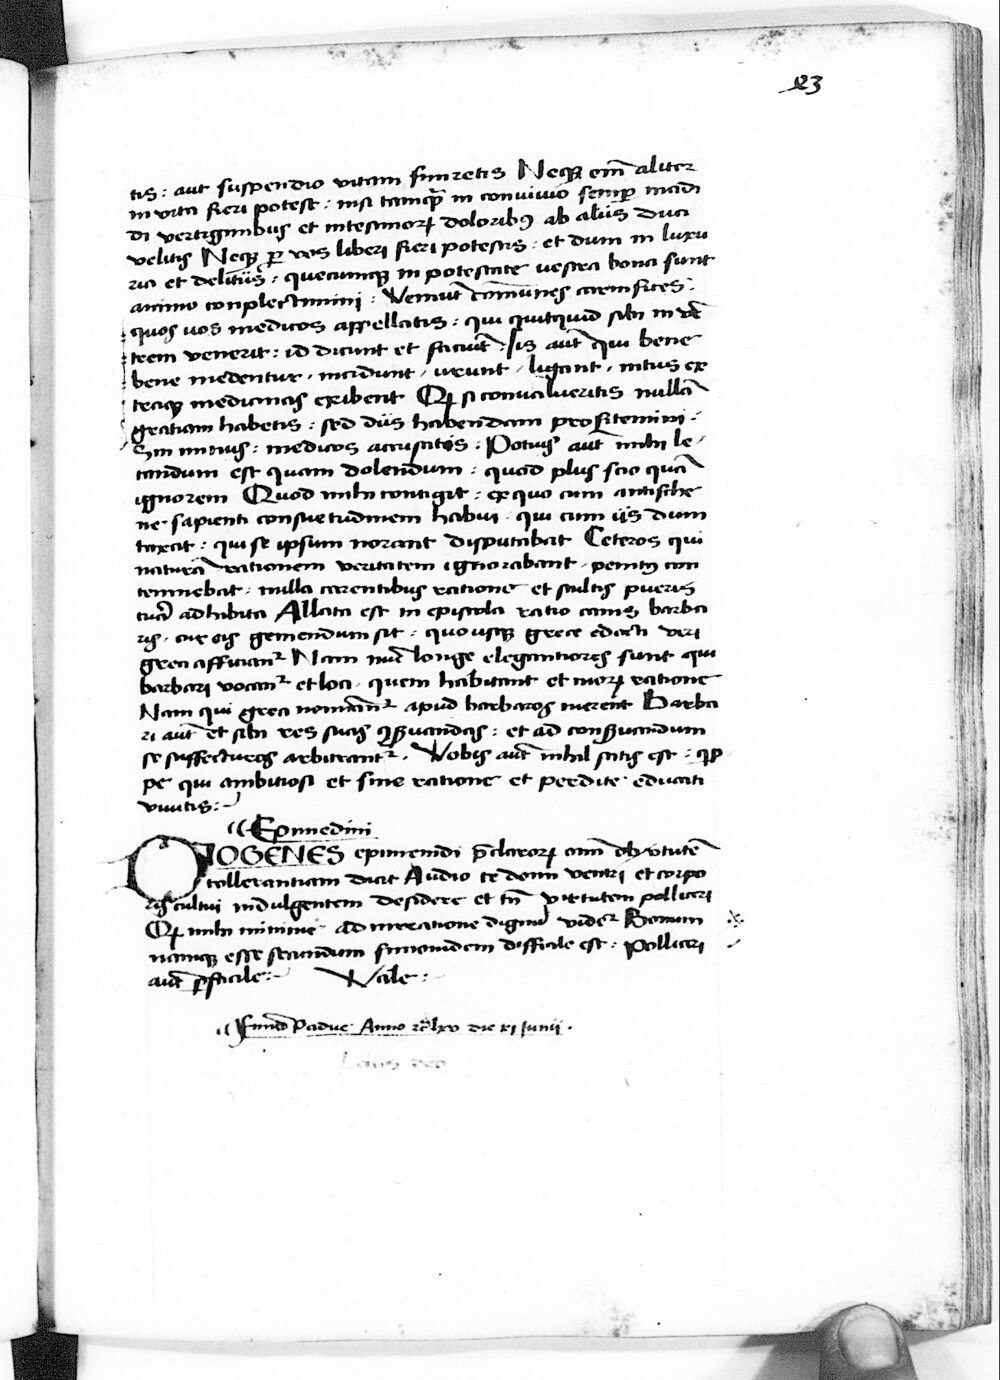 23
tis: aut suspendio vitam finiretis Neqꝫ em̄ aliter
in vita fieri potest: nisi tamqᷓ in convivio semꝑ incidi
di vertiginibus et intestinoꝝ doloribꝰ ab aliis duci
velitis Neqꝫ ꝑ vos liberi fieri potestis: et dum in luxu
ria et delitiis: quecumqꝫ in potestate vestra bona sunt
animo conplectimini: Veniūt cōmunes carnifices:
quos uos medicos appellatis: qui quitquid sibi in vē
trem venerit: id dicunt et faciūt: Iis aut̄ qui bene
bene medentur, incidunt, urunt, ligant, intus ex
traqꝫ medicinas exibent Qꝫ si convalueritis nullā
gratiam habetis: sed diis habendam profitemini:
Sin minus: medicos accusatis: Potius aut̄ mihi le
tandum est quam dolendum: quod plus scio quā
ignorem Quod mihi contigit: ex quo cum antisthe
ne sapienti consuetudinem habui qui cum iis dum
taxat: qui se ipsum norant disputabat Ceteros qui
naturā rationem veritatem ignorabant, penitꝰ con
temnebat, nulla carentibus ratione et stultis pueris
cura adhibita Allata est in epistola ratio canis barba
ris, cur eis gemendum sit: quousqꝫ grece edocti veri
greci afficianᷣ Nam nūc longe elegantiores sunt qui
barbari vocanᷣ et loci, quem habitant et moꝝ ratione
Nam qui greci nominanᷣ apud barbaros merent Barba
ri aut̄ et sibi res suas ꝯẜvandas: et ad conẜvandum
se suffecturos arbitrantᷣ. Vobis aut̄ nihil satis est: qip
pe qui ambitiosi et sine ratione et perdite educati
vivitis:
Epimedini
DIOGENES epimenidi p̄claroꝝ cum ob v̓tutē
tollerantiam dicit Audio te domi ventri et corpo
ris cultui indulgentem desidere et tn̄ virtutem polliceri
Qꝫ mihi minime admiratione dignū videᷣ Bonum
namqꝫ esse secundum simonidem difficile est: polliceri
aut̄ ꝑfacile: Vale:
Finitū Padue Anno lxv die xi Junii.
Laus deo